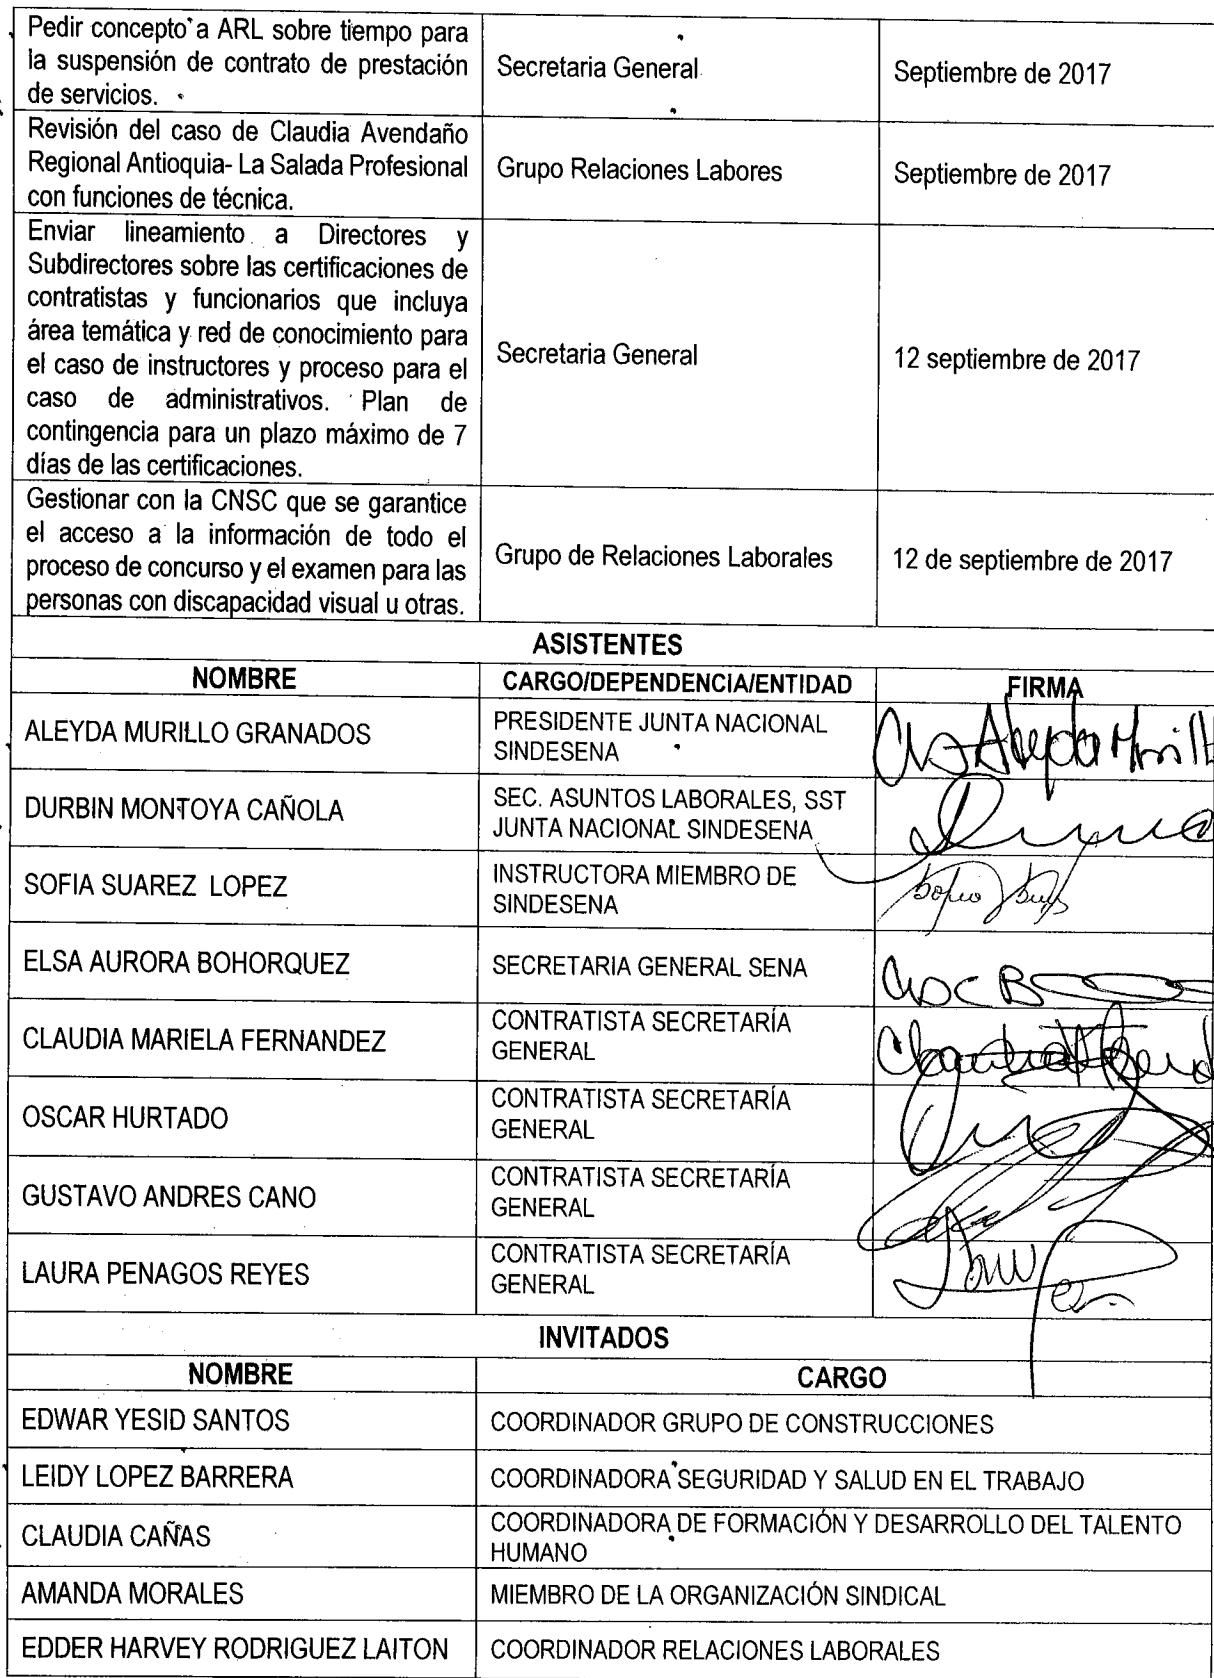 Pedir concepto a ARL sobre tiempo para
la suspensión de contrato de prestación
de servicios.
Secretaria General
Septiembre de 2017
Revisión del caso de Claudia Avendaño
Regional Antioquia- La Salada Profesional
con funciones de técnica.
Grupo Relaciones Labores
Septiembre de 2017
Enviar lineamiento a Directores y
Subdirectores sobre las certificaciones de
contratistas y funcionarios que incluya
área temática y red de conocimiento para
el caso de instructores y proceso para el
caso de administrativos. Plan de
contingencia para un plazo máximo de 7
días de las certificaciones.
Secretaria General
12 septiembre de 2017
Gestionar con la CNSC que se garantice
el acceso a la información de todo el
proceso de concurso y el examen para las
personas con discapacidad visual u otras.
Grupo de Relaciones Laborales
12 de septiembre de 2017
ASISTENTES
NOMBRE
CARGO/DEPENDENCIA/ENTIDAD
FIRMA
ALEYDA MURILLO GRANADOS
PRESIDENTE JUNTA NACIONAL
SINDESENA
Aleyda Murill
DURBIN MONTOYA CAÑOLA
SEC. ASUNTOS LABORALES, SST
JUNTA NACIONAL SINDESENA
SOFIA SUAREZ LOPEZ
INSTRUCTORA MIEMBRO DE
SINDESENA
ELSA AURORA BOHORQUEZ
SECRETARIA GENERAL SENA
CLAUDIA MARIELA FERNANDEZ
CONTRATISTA SECRETARÍA
GENERAL
OSCAR HURTADO
CONTRATISTA SECRETARÍA
GENERAL
GUSTAVO ANDRES CANO
CONTRATISTA SECRETARÍA
GENERAL
LAURA PENAGOS REYES
CONTRATISTA SECRETARÍA
GENERAL
INVITADOS
NOMBRE
CARGO
EDWAR YESID SANTOS
COORDINADOR GRUPO DE CONSTRUCCIONES
LEIDY LOPEZ BARRERA
COORDINADORA SEGURIDAD Y SALUD EN EL TRABAJO
CLAUDIA CAÑAS
COORDINADORA DE FORMACIÓN Y DESARROLLO DEL TALENTO
HUMANO
AMANDA MORALES
MIEMBRO DE LA ORGANIZACIÓN SINDICAL
EDDER HARVEY RODRIGUEZ LAITON
COORDINADOR RELACIONES LABORALES